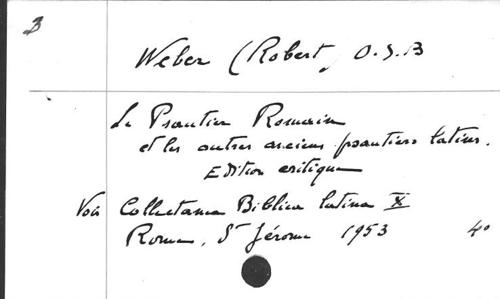 B
Weber (Robert, O.S.B
Le Psautier Romain
et les autres anciens psautiers latins.
Edition critique
Voir Collectanea Biblica latina X
Rome, St Jérome 1953 4o